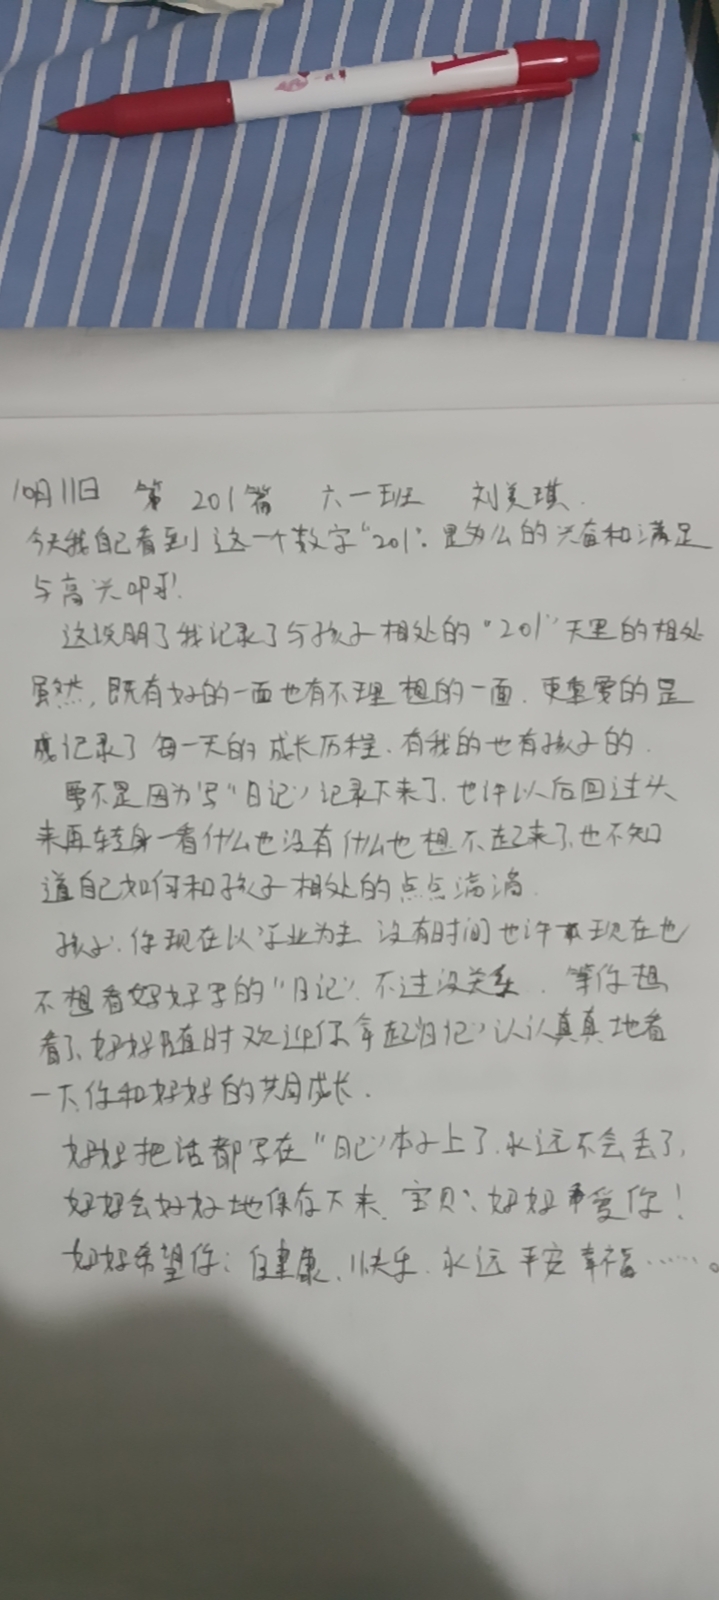 10月11日 第201篇 六一班 刘美琪.
今天我自己看到这一个数字"201". 是多么的兴奋和满足
与高兴呀!
这说明了我记录了与孩子相处的"201"天里的相处
虽然,既有好的一面也有不理想的一面.更重要的是
我记录了每一天的成长历程.有我的也有孩子的.
要不是因为写"日记"记录下来了.也许以后回过头
来再转身一看什么也没有什么也想不起来了,也不知
道自己如何和孩子相处的点点滴滴.
孩子.你现在以学业为主 没有时间也许 现在也
不想看妈妈写的"日记".不过没关系.等你想
看了.妈妈随时欢迎你拿起"日记"认认真真地看
一下你和妈妈的共同成长.
妈妈把话都写在"日记"本子上了.永远不会丢了,
妈妈会好好地保存下来.宝贝:妈妈 爱你!
妈妈希望你:健康、快乐.永远平安幸福……。